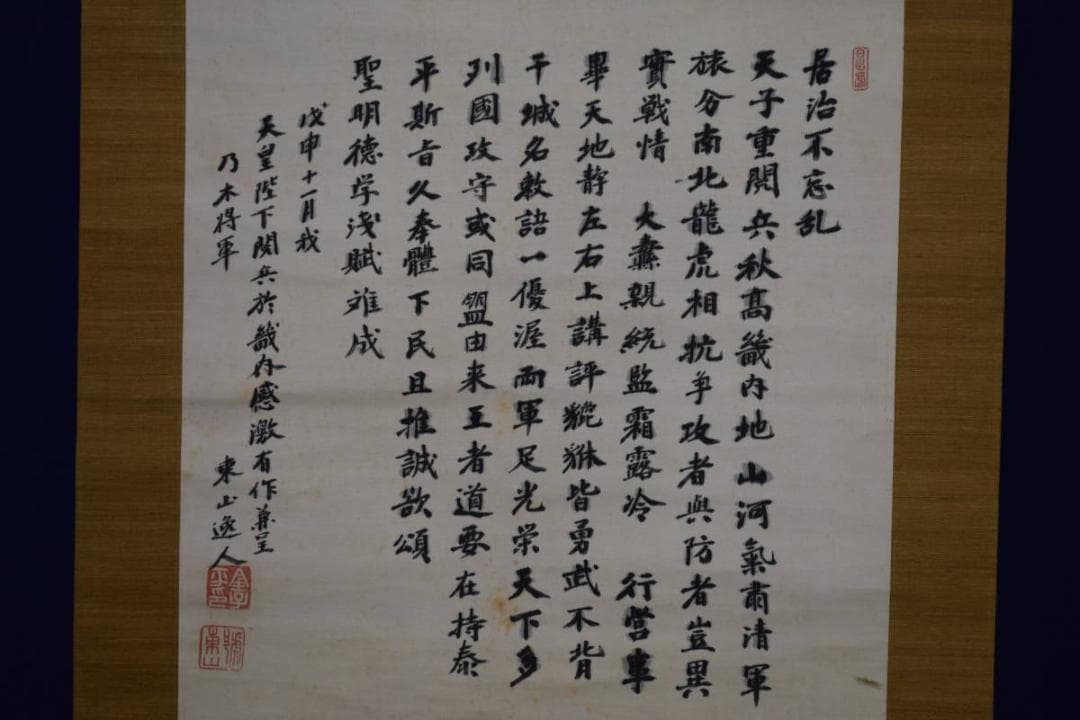 居治不忘乱
天子重閲兵秋高畿内地山河氣肅清軍
旅分南北龍虎相抗争攻者與防者豈異
實戦情 大纛親統監霜露冷 行営事
畢天地静左右上講評貔貅皆勇武不背
干城名敕語一優渥両軍足光栄天下多
列國攻守或同盟由来王者道要在持泰
平斯旨久奉體下民且推誠欲頌
聖明德学浅賦難成
戊申十一月我
天皇陛下閲兵於畿内感激有作兼呈
乃木将軍
東山逸人